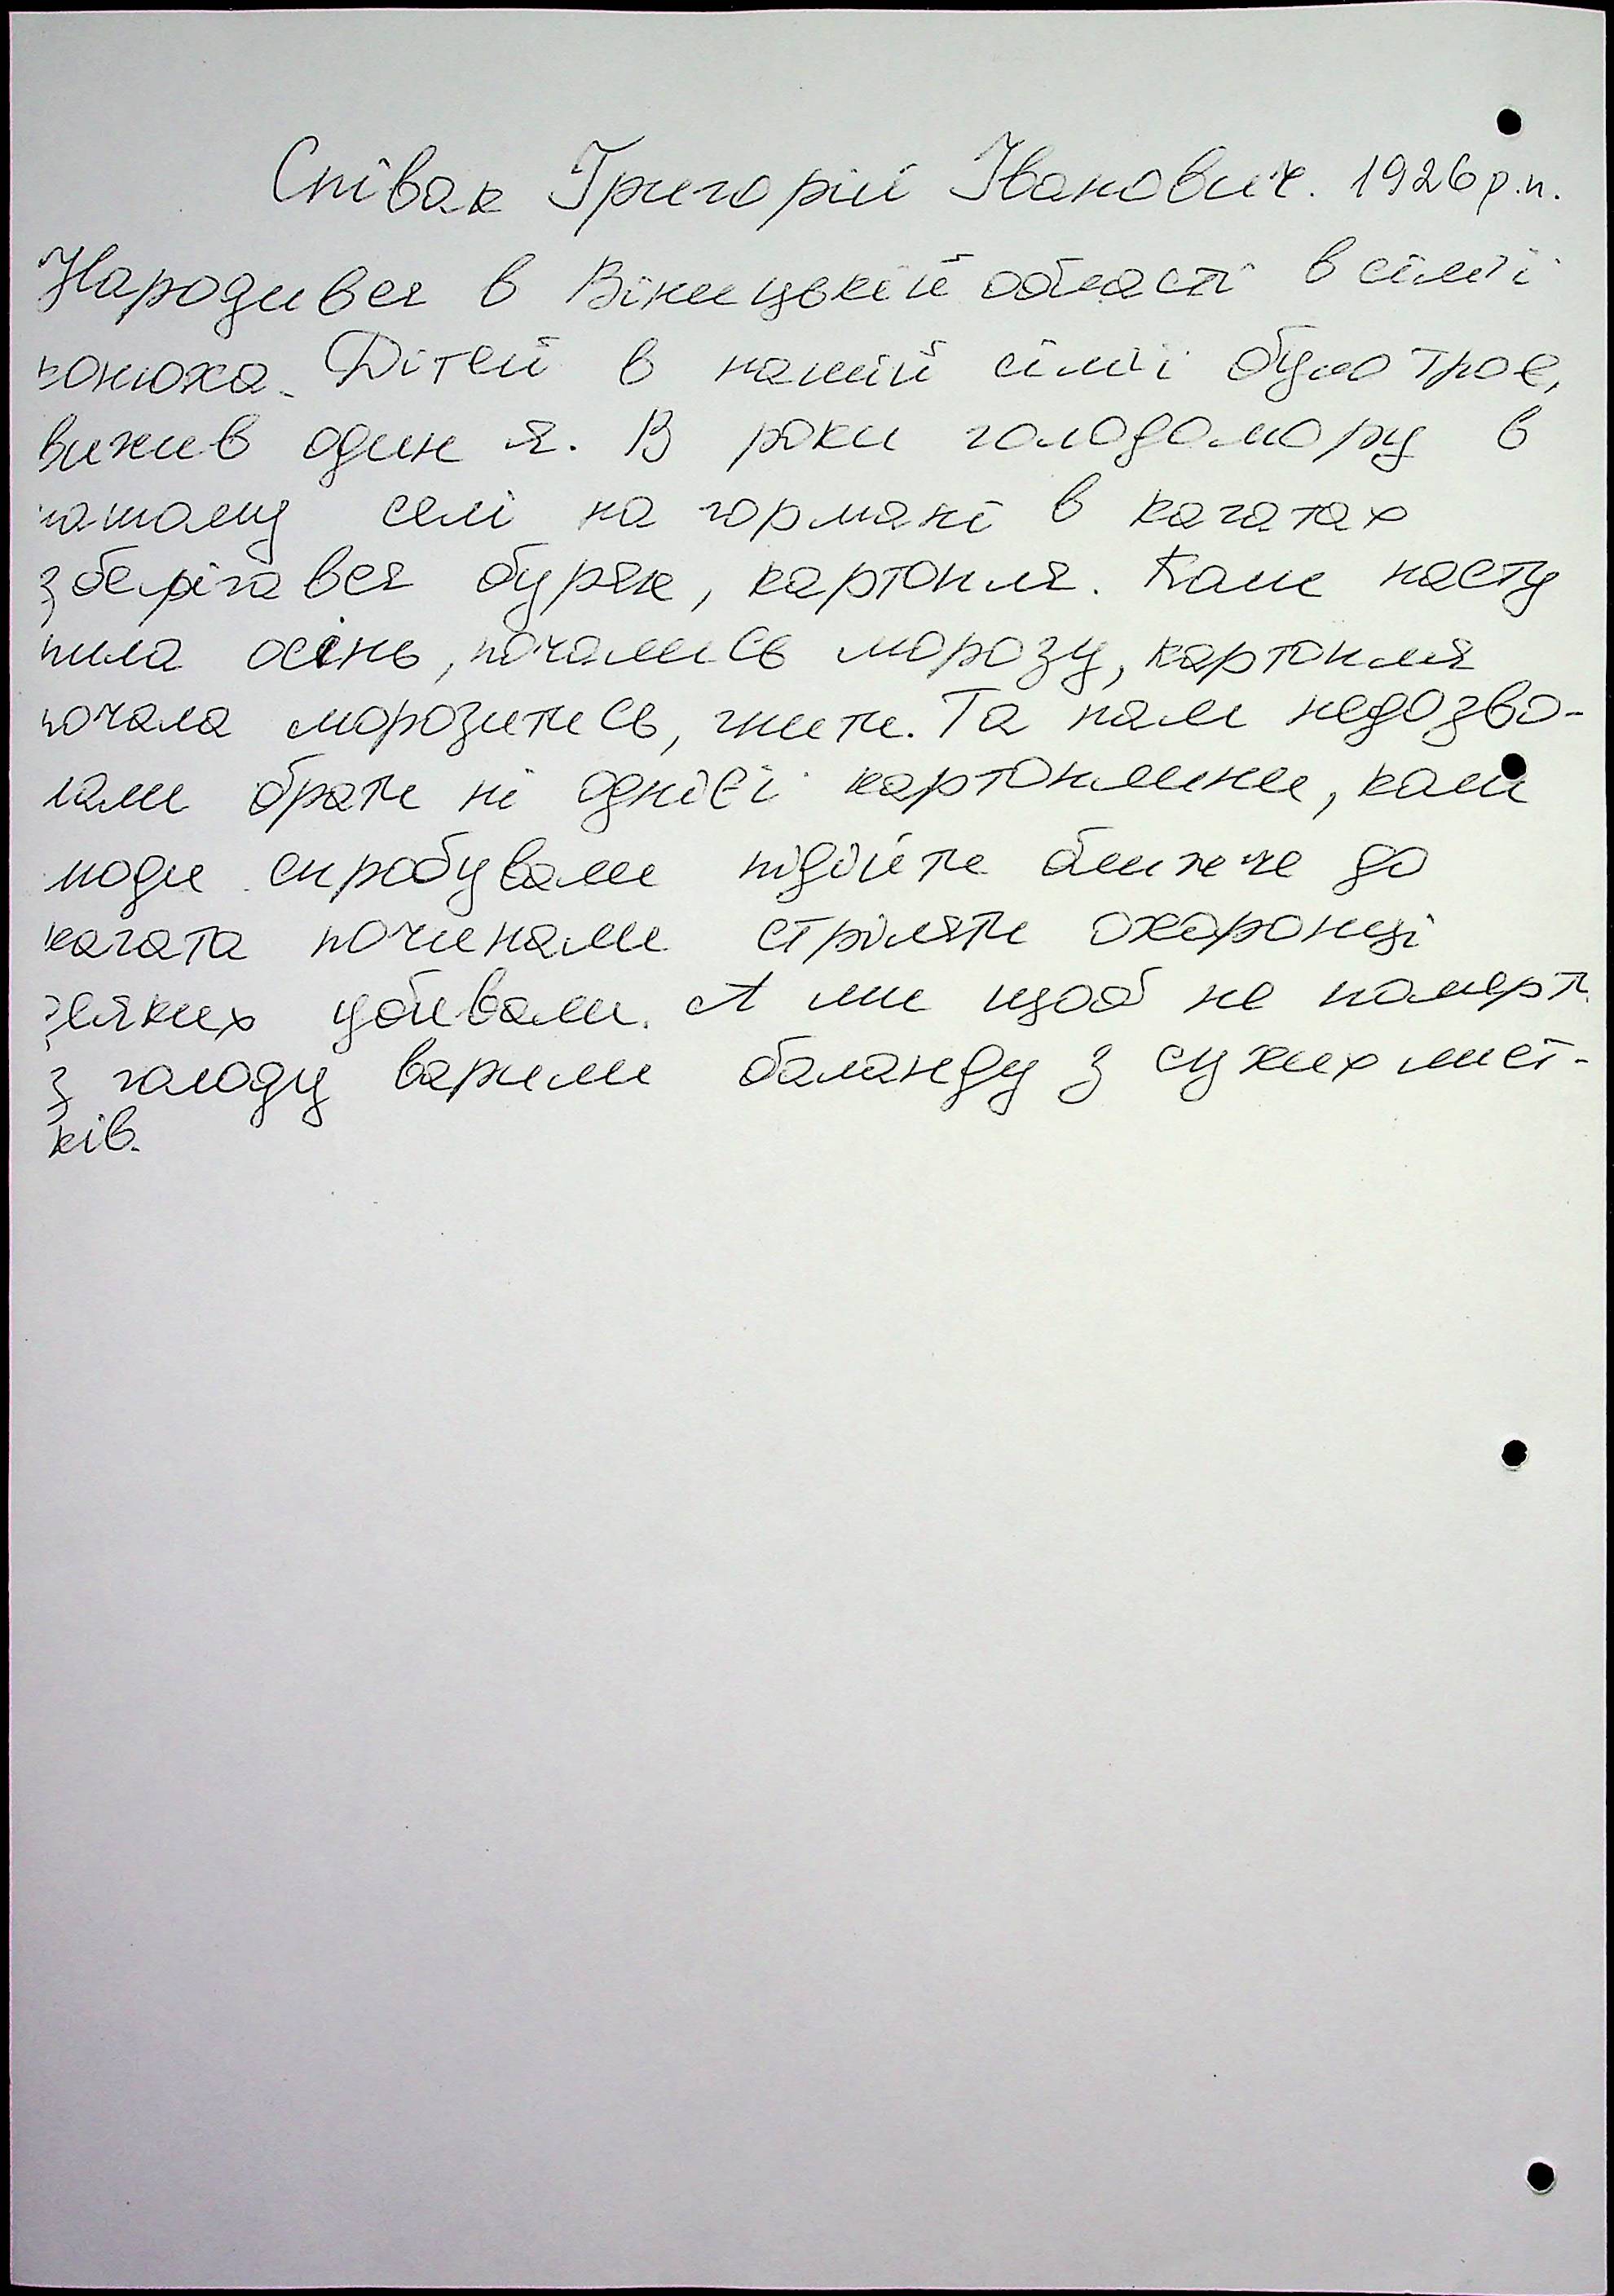 Співак Григорій Іванович. 1926 р.н.
Народився в Вінницькій області в сім'ї
конюха. Дітей в нашій сім'ї було троє,
вижив один я. В роки голодомору в
нашому селі на гормані в кагатах
зберігався буряк, картопля. Коли насту
пила осінь, почались морозу, картопля
почала морозитись, гнити. Та нам недозво-
ляли брати ні однієї картоплини, коли
люди спробували підійти ближче до
кагата починали стріляти охоронці
деяких убивали. А ми щоб не померти
з голоду варили баланду з сухих лист-
ків.